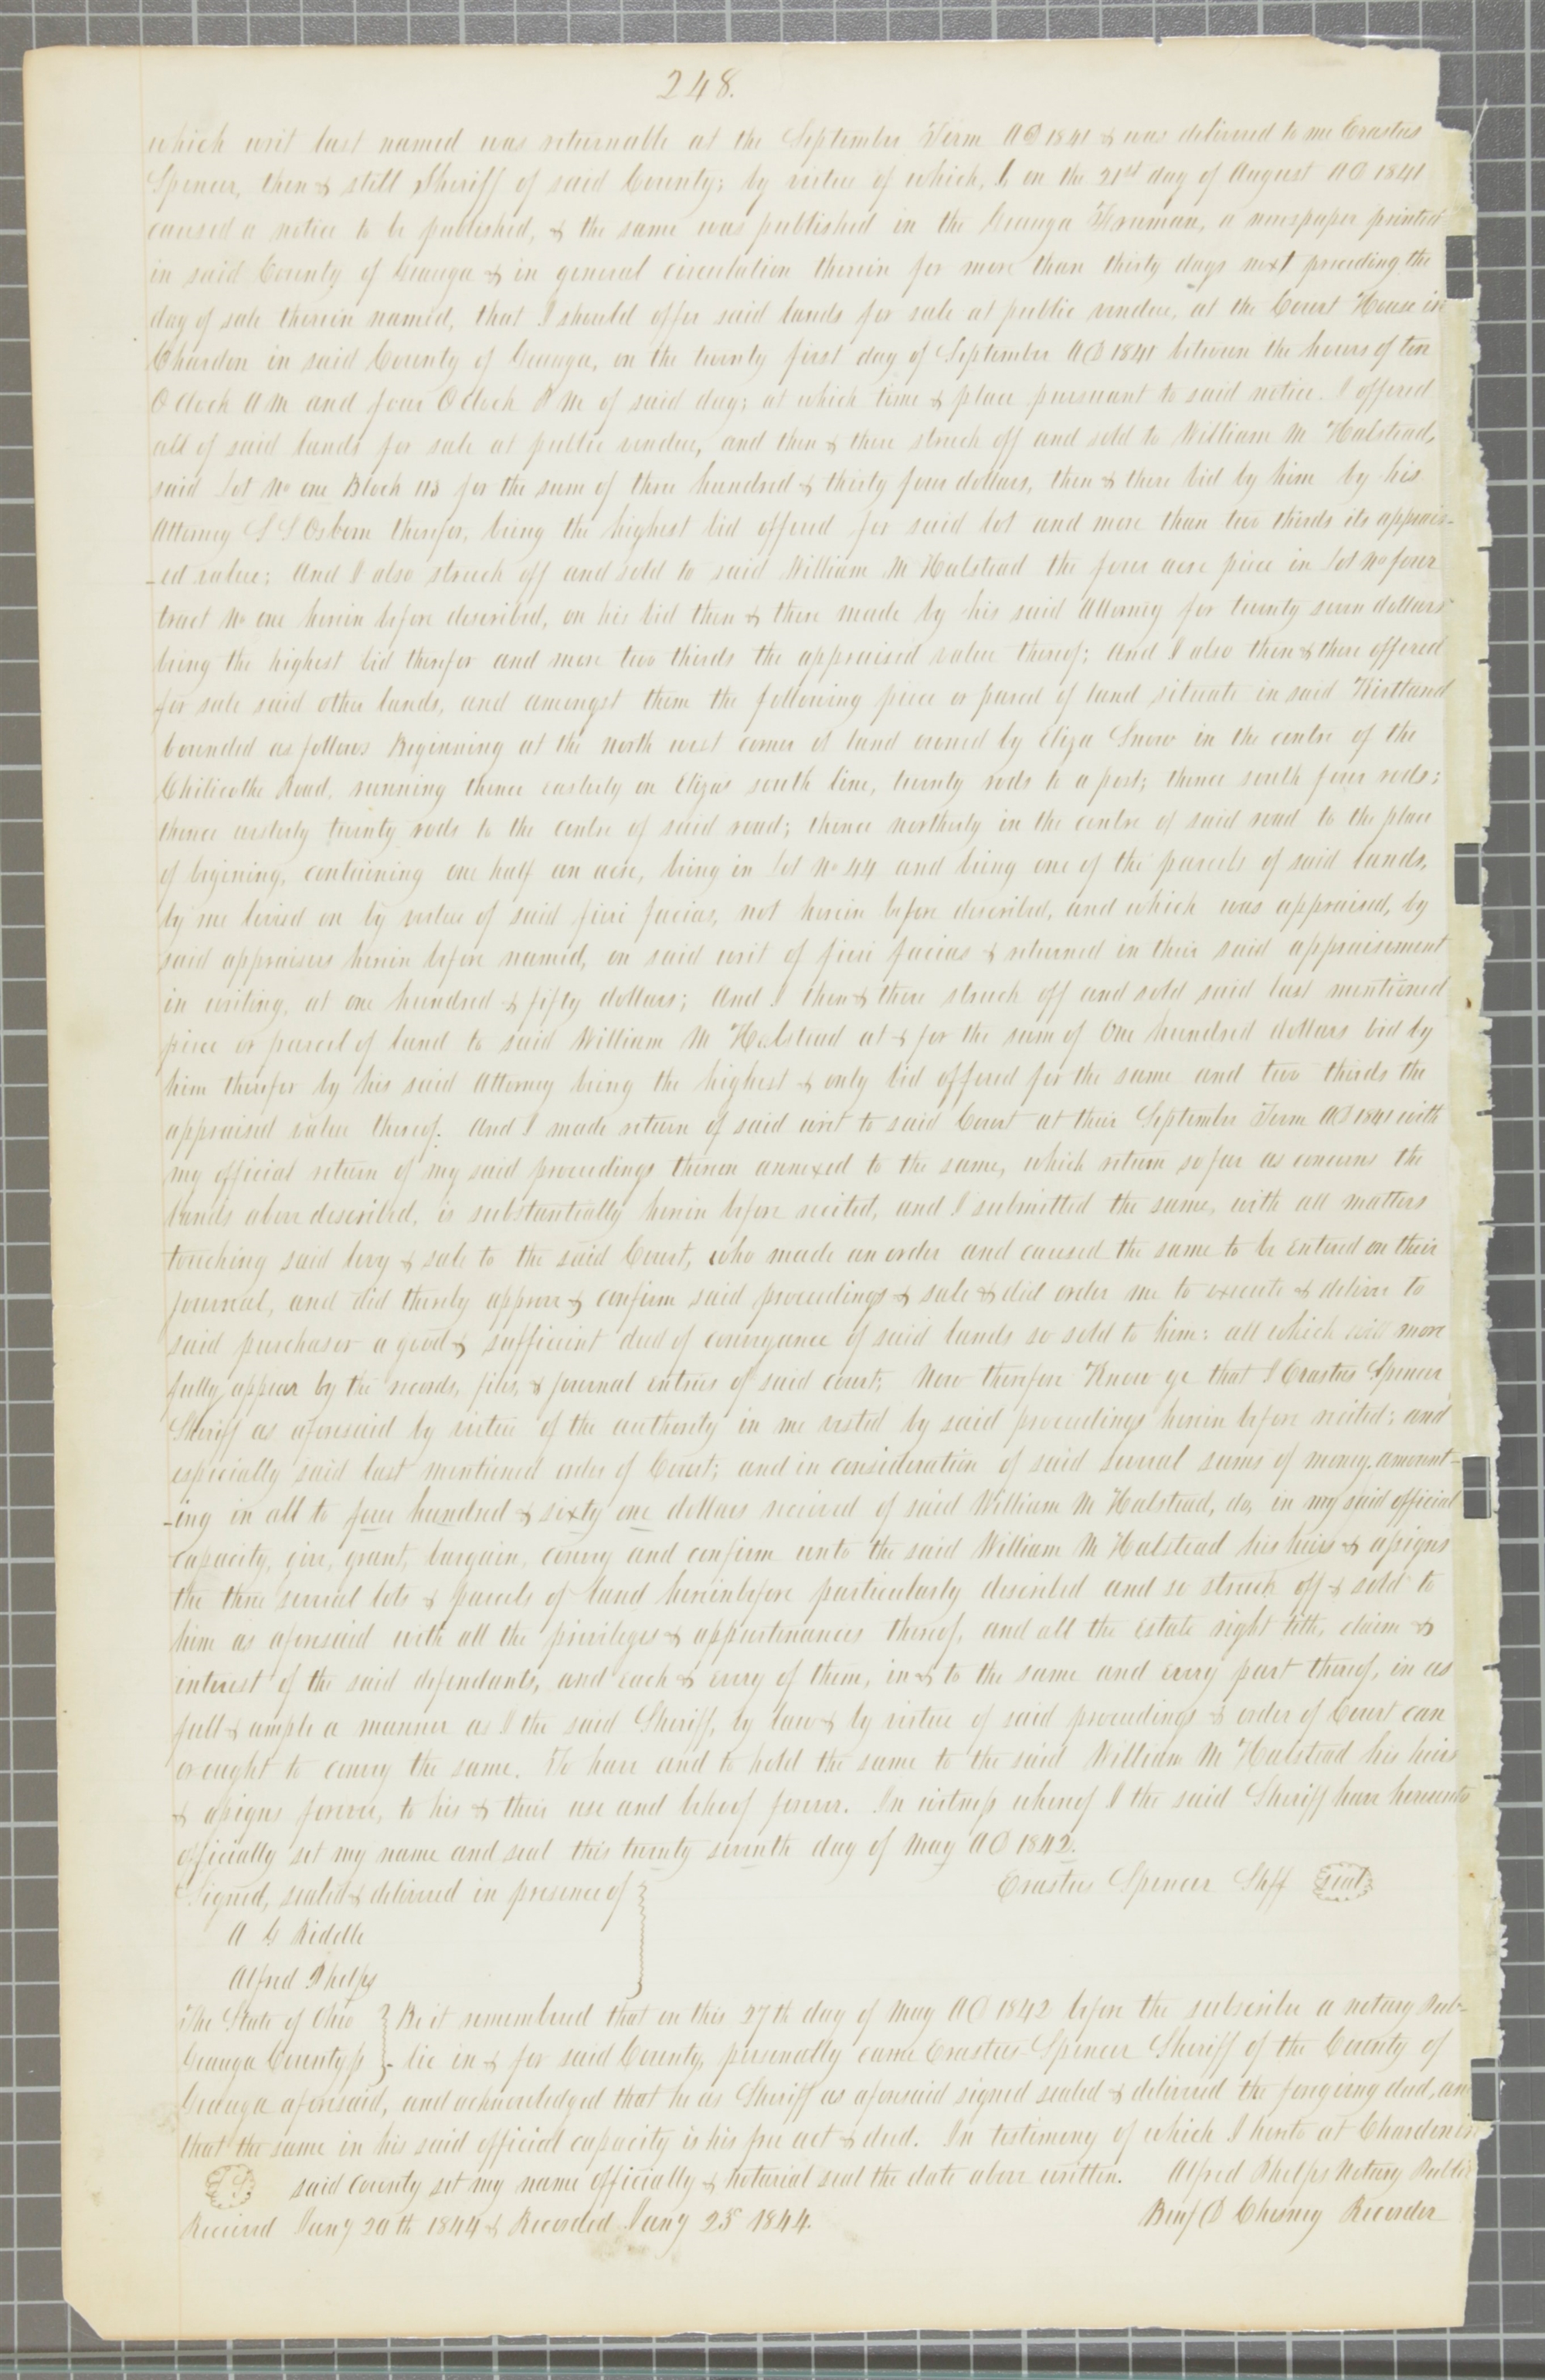 248.
which writ last named was returnable at the September Term AD 1841 & was delivered to me Erastus
Spencer, then & still Sheriff of said County; by virtue of which, I, on the 21st day of August AD 1841
caused a notice to be published, & the same was published in the Geauga Freeman, a newspaper printed
in said County of Geauga & in general circulation therein for more than thirty days next preceding the
day of sale therein named, that I should offer said lands for sale at public vendue, at the Court House in
Chardon in said County of Geauga, on the twenty first day of September AD 1841 between the hours of ten
O clock AM and four O clock PM of said day; at which time & place pursuant to said notice. I offered
all of said lands for sale at public vendue, and then & there struck off and sold to William M Halstead,
said Lot No one Block 113 for the sum of three hundred & thirty four dollars, then & there bid by him by his
Attorney S S Osborn therefor, being the highest bid offered for said lot and more than two thirds its apprais-
-ed value; And I also struck off and sold to said William M Halstead the four acre piece in Lot No four
tract No one herein before described, on his bid then & there made by his said Attorney for twenty seven dollars
being the highest bid therefor and more two thirds the appraised value thereof; And I also then & there offered
for sale said other lands, and amongst them the following piece or parcel of land situate in said Kirtland
bounded as follows Beginning at the north west corner of land owned by Eliza Snow in the centre of the
Chilicothe Road, running thence easterly on Elizas south line, twenty rods to a post; thence south four rods;
thence westerly twenty rods to the centre of said road; thence northerly in the centre of said road to the place
of begining, containing one half an acre, being in Lot No 44 and being one of the parcels of said lands,
by me levied on by virtue of said fieri facias, not herein before described, and which was appraised, by
said appraisers herein before named, on said writ of fieri facias & returned in their said appraisement
in writing, at one hundred & fifty dollars; And I then & there struck off and sold said last mentioned
piece or parcel of land to said William M Halstead at & for the sum of One hundred dollars bid by
him therefor by his said Attorney being the highest & only bid offered for the same and two thirds the
appraised value thereof. And I made return of said writ to said Court at their September Term AD 1841 with
my official return of my said proceedings theron annexed to the same, which return so far as concerns the
lands above described, is substantially herein before recited, and I submitted the same, with all matters
touching said levy & sale to the said Court, who made an order and caused the same to be entered on their
journal, and did thereby approve & confirm said proceedings & sale & did order me to execute & deliver to
said purchaser a good & sufficient deed of conveyance of said lands so sold to him; all which will more
fully appear by the records, files, & journal entries of said court; Now therefore Know ye that I Erastus Spencer
Sheriff as aforesaid by virtue of the authority in me vested by said proceedings herein before recited; and
especially said last mentioned order of Court; and in consideration of said several sums of money, amount-
-ing in all to four hundred & sixty one dollars received of said William M Halstead, do, in my said official
capacity, give, grant, bargain, convey and confirm unto the said William M Halstead his heirs & assigns
the three several lots & parcels of land hereinbefore particularly described and so struck off & sold to
him as aforesaid with all the privileges & appurtenances thereof, and all the estate right title, claim &
interest of the said defendants, and each & every of them, in & to the same and every part thereof, in as
full & ample a manner as I the said Sheriff, by law & by virtue of said proceedings & order of Court can
or ought to convey the same. To have and to hold the same to the said William M Halstead his heirs
& assigns forever, to his & their use and behoof forever. In witness whereof I the said Sheriff have hereunto
officially set my name and seal this twenty seventh day of May AD 1842.
Signed, sealed & delivered in presence of
Erastus Spencer Shff seal
A G Riddle
Alfred Phelps
The State of Ohio Be it remembered that on this 27th day of May AD 1842 before the subscriber a notary Pub-
Geauga County ss - lic in & for said County, personally came Erastus Spencer Sheriff of the County of
Geauga aforesaid, and acknowledged that he as Sheriff as aforesaid signed sealed & delivered the foregoing deed, an
that the same in his said official capacity is his free act & deed. In testimony of which I hereto at Chardon in
LS said County set my name officially & notarial seal the date above written. Alfred Phelps Notary Public
Received Jany 20th 1844 & Recorded Jany 25 1844. Benj D Chesney Recorder